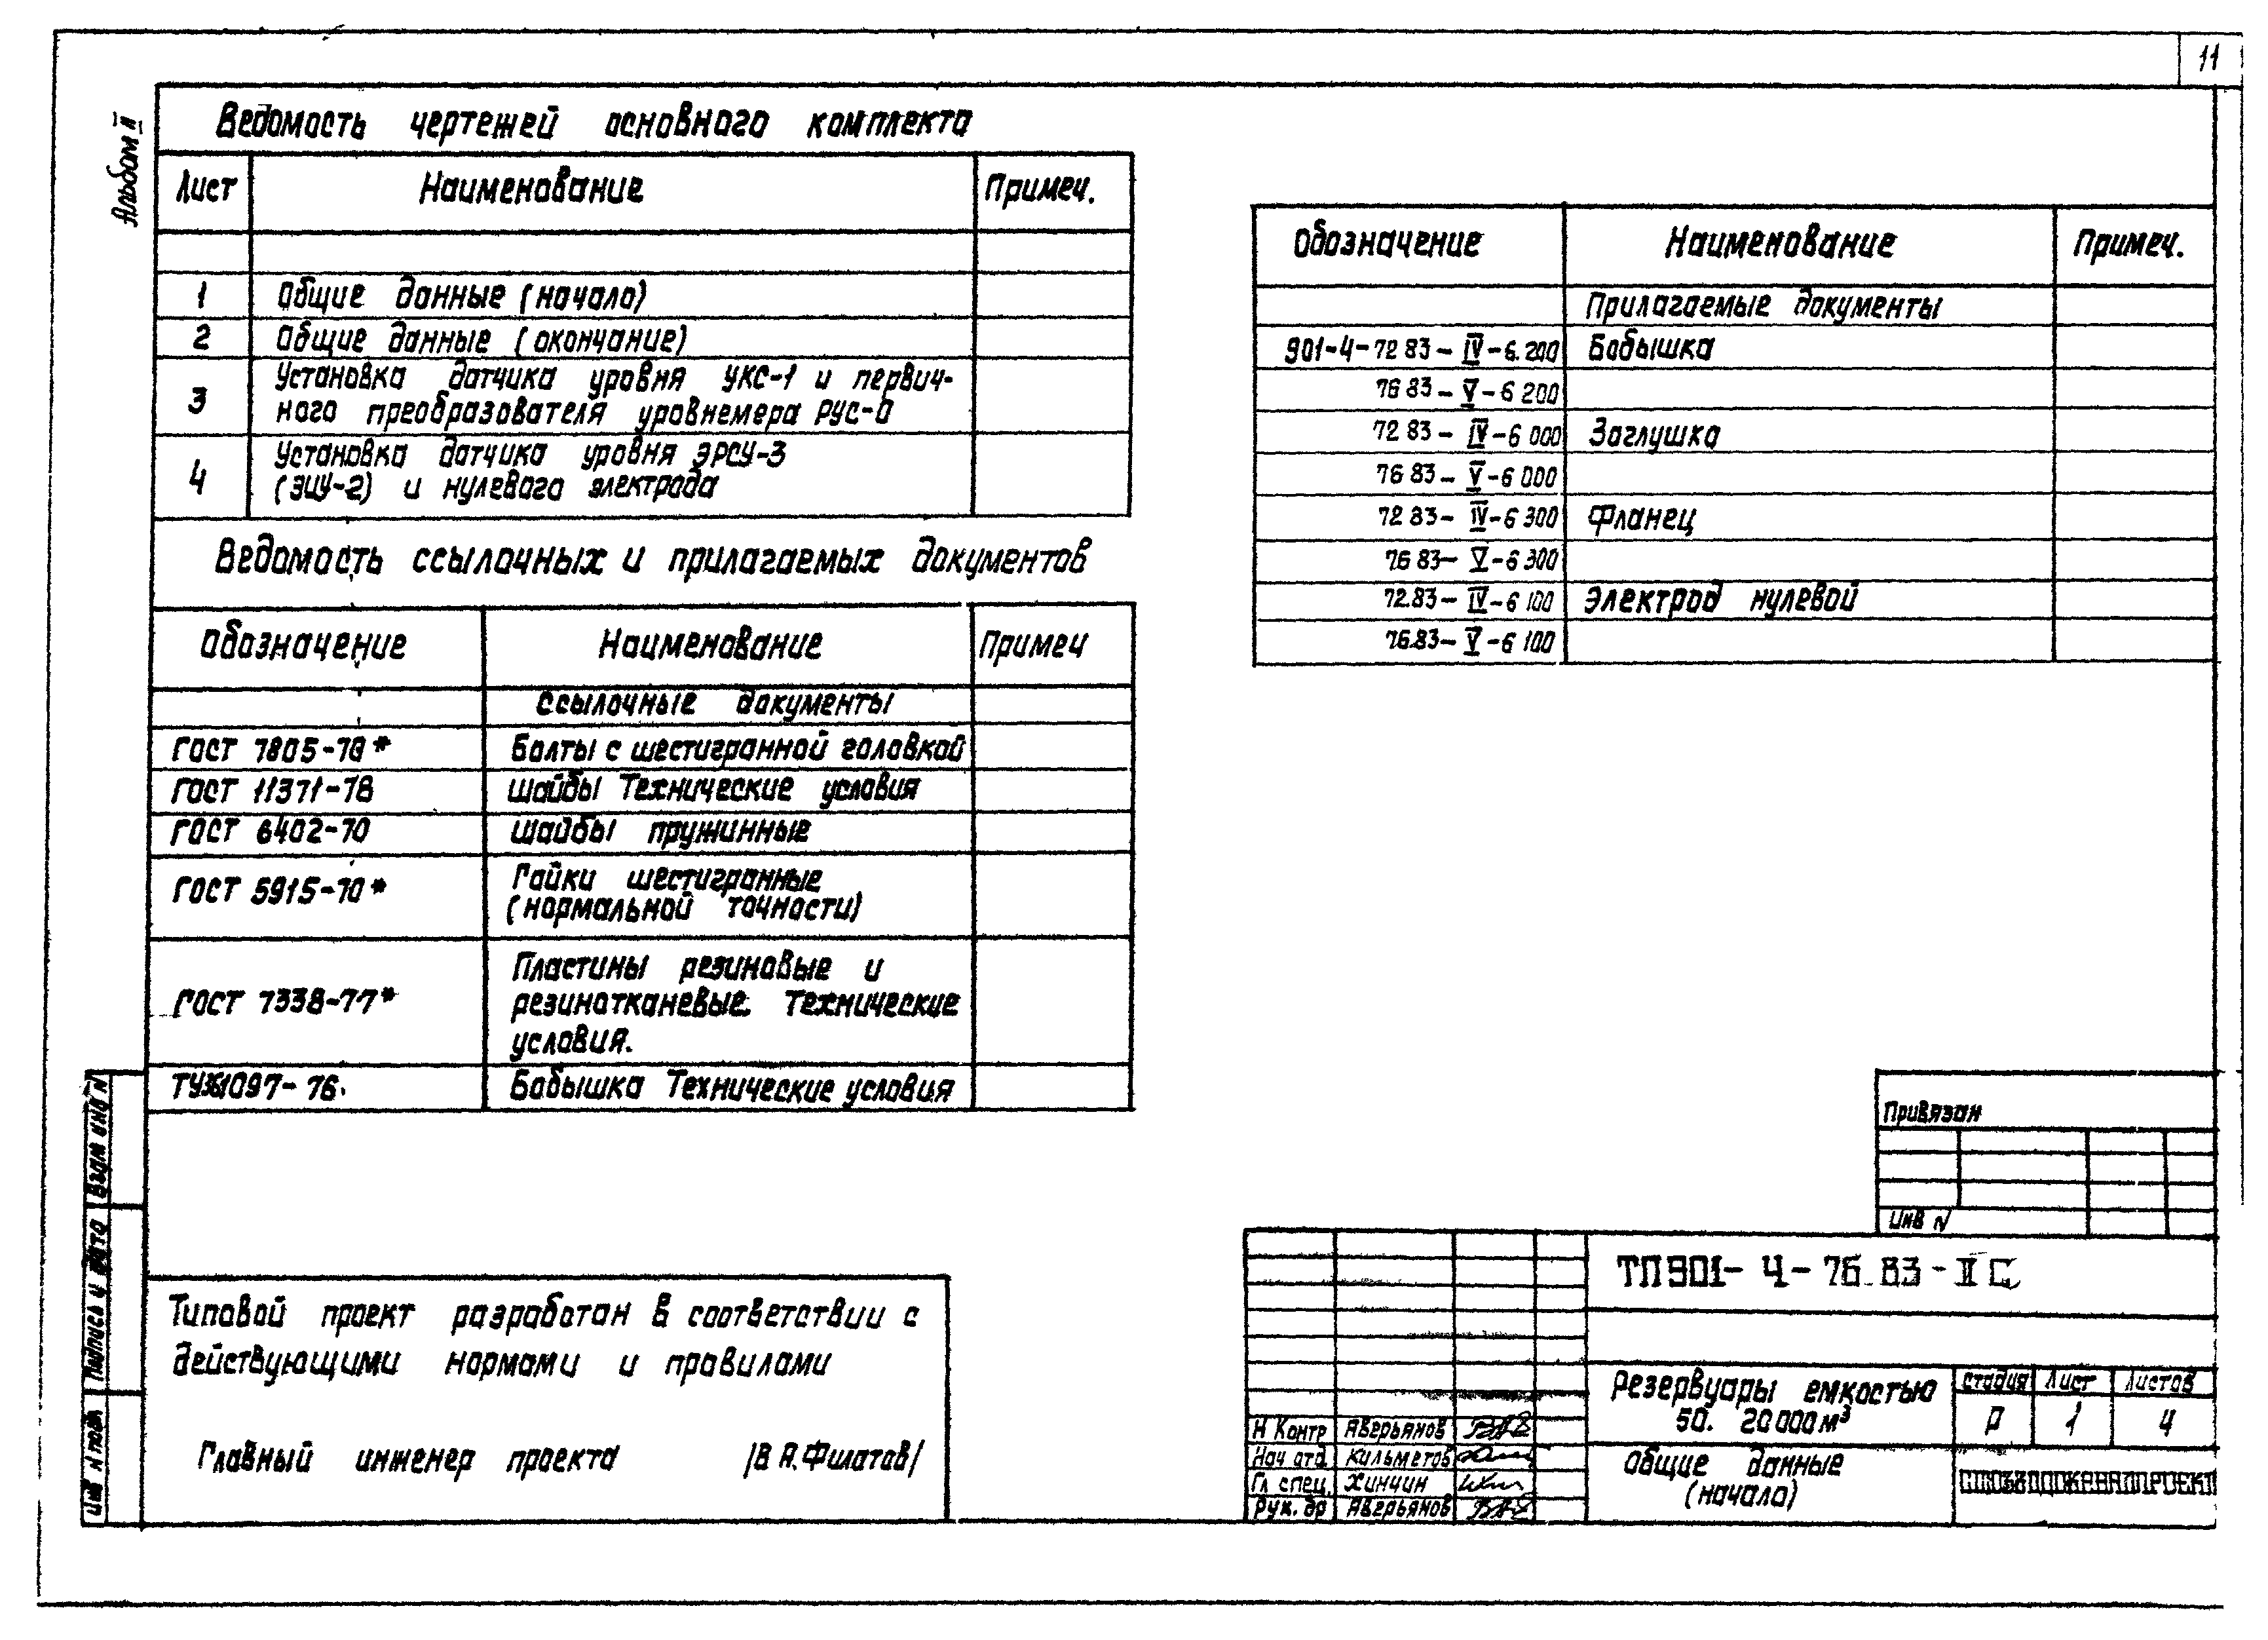 11
Альбом II
Ведомость чертежей основного комплекта
Лист Наименование Примеч.
1 Общие данные (начало)
2 Общие данные (окончание)
3 Установка датчика уровня УКС-1 и первич-
ного преобразователя уровнемера РУС-0
4 Установка датчика уровня ЭРСУ-3
(ЭИУ-2) и нулевого электрода
Ведомость ссылочных и прилагаемых документов
Обозначение Наименование Примеч
Ссылочные документы
ГОСТ 7805-70* Болты с шестигранной головкой
ГОСТ 11371-78 Шайбы Технические условия
ГОСТ 6402-70 Шайбы пружинные
ГОСТ 5915-70* Гайки шестигранные
(нормальной точности)
ГОСТ 7338-77* Пластины резиновые и
резинотканевые. Технические
условия.
1097-76. Бобышка Технические условия
Обозначение Наименование Примеч.
Прилагаемые документы
901-4-72 83-IV-6.200 Бобышка
76 83-V-6 200
72 83-IV-6 000 Заглушка
76 83-V-6 000
72 83-IV-6 300 Фланец
76 83-V-6 300
72.83-IV-6 100 Электрод нулевой
76.83-V-6 100
Типовой проект разработан в соответствии с
действующими нормами и правилами
Главный инженер проекта /В А. Филатов/
Взам инв N
Подпись и дата
Инв N подл
Привязан
Инв N
ТП 901-4-76.83-II С
Резервуары емкостью
50. 20 000 м³
Стадия Лист Листов
Р 1 4
Н Контр Аверьянов
Нач отд. Кильметов
Гл спец. Хинчин
Рук. гр Аверьянов
Общие данные
(начало)
СОЮЗВОДОКАНАЛПРОЕКТ